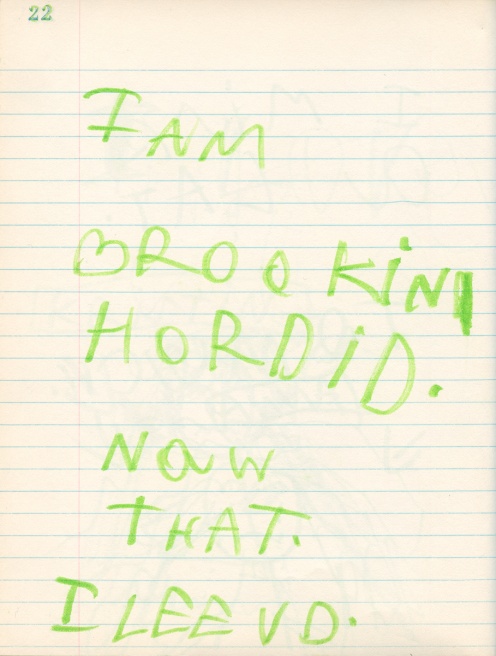 22
I AM
BROOKIN
HORDiD.
NOW
THAT.
I LEEVD.